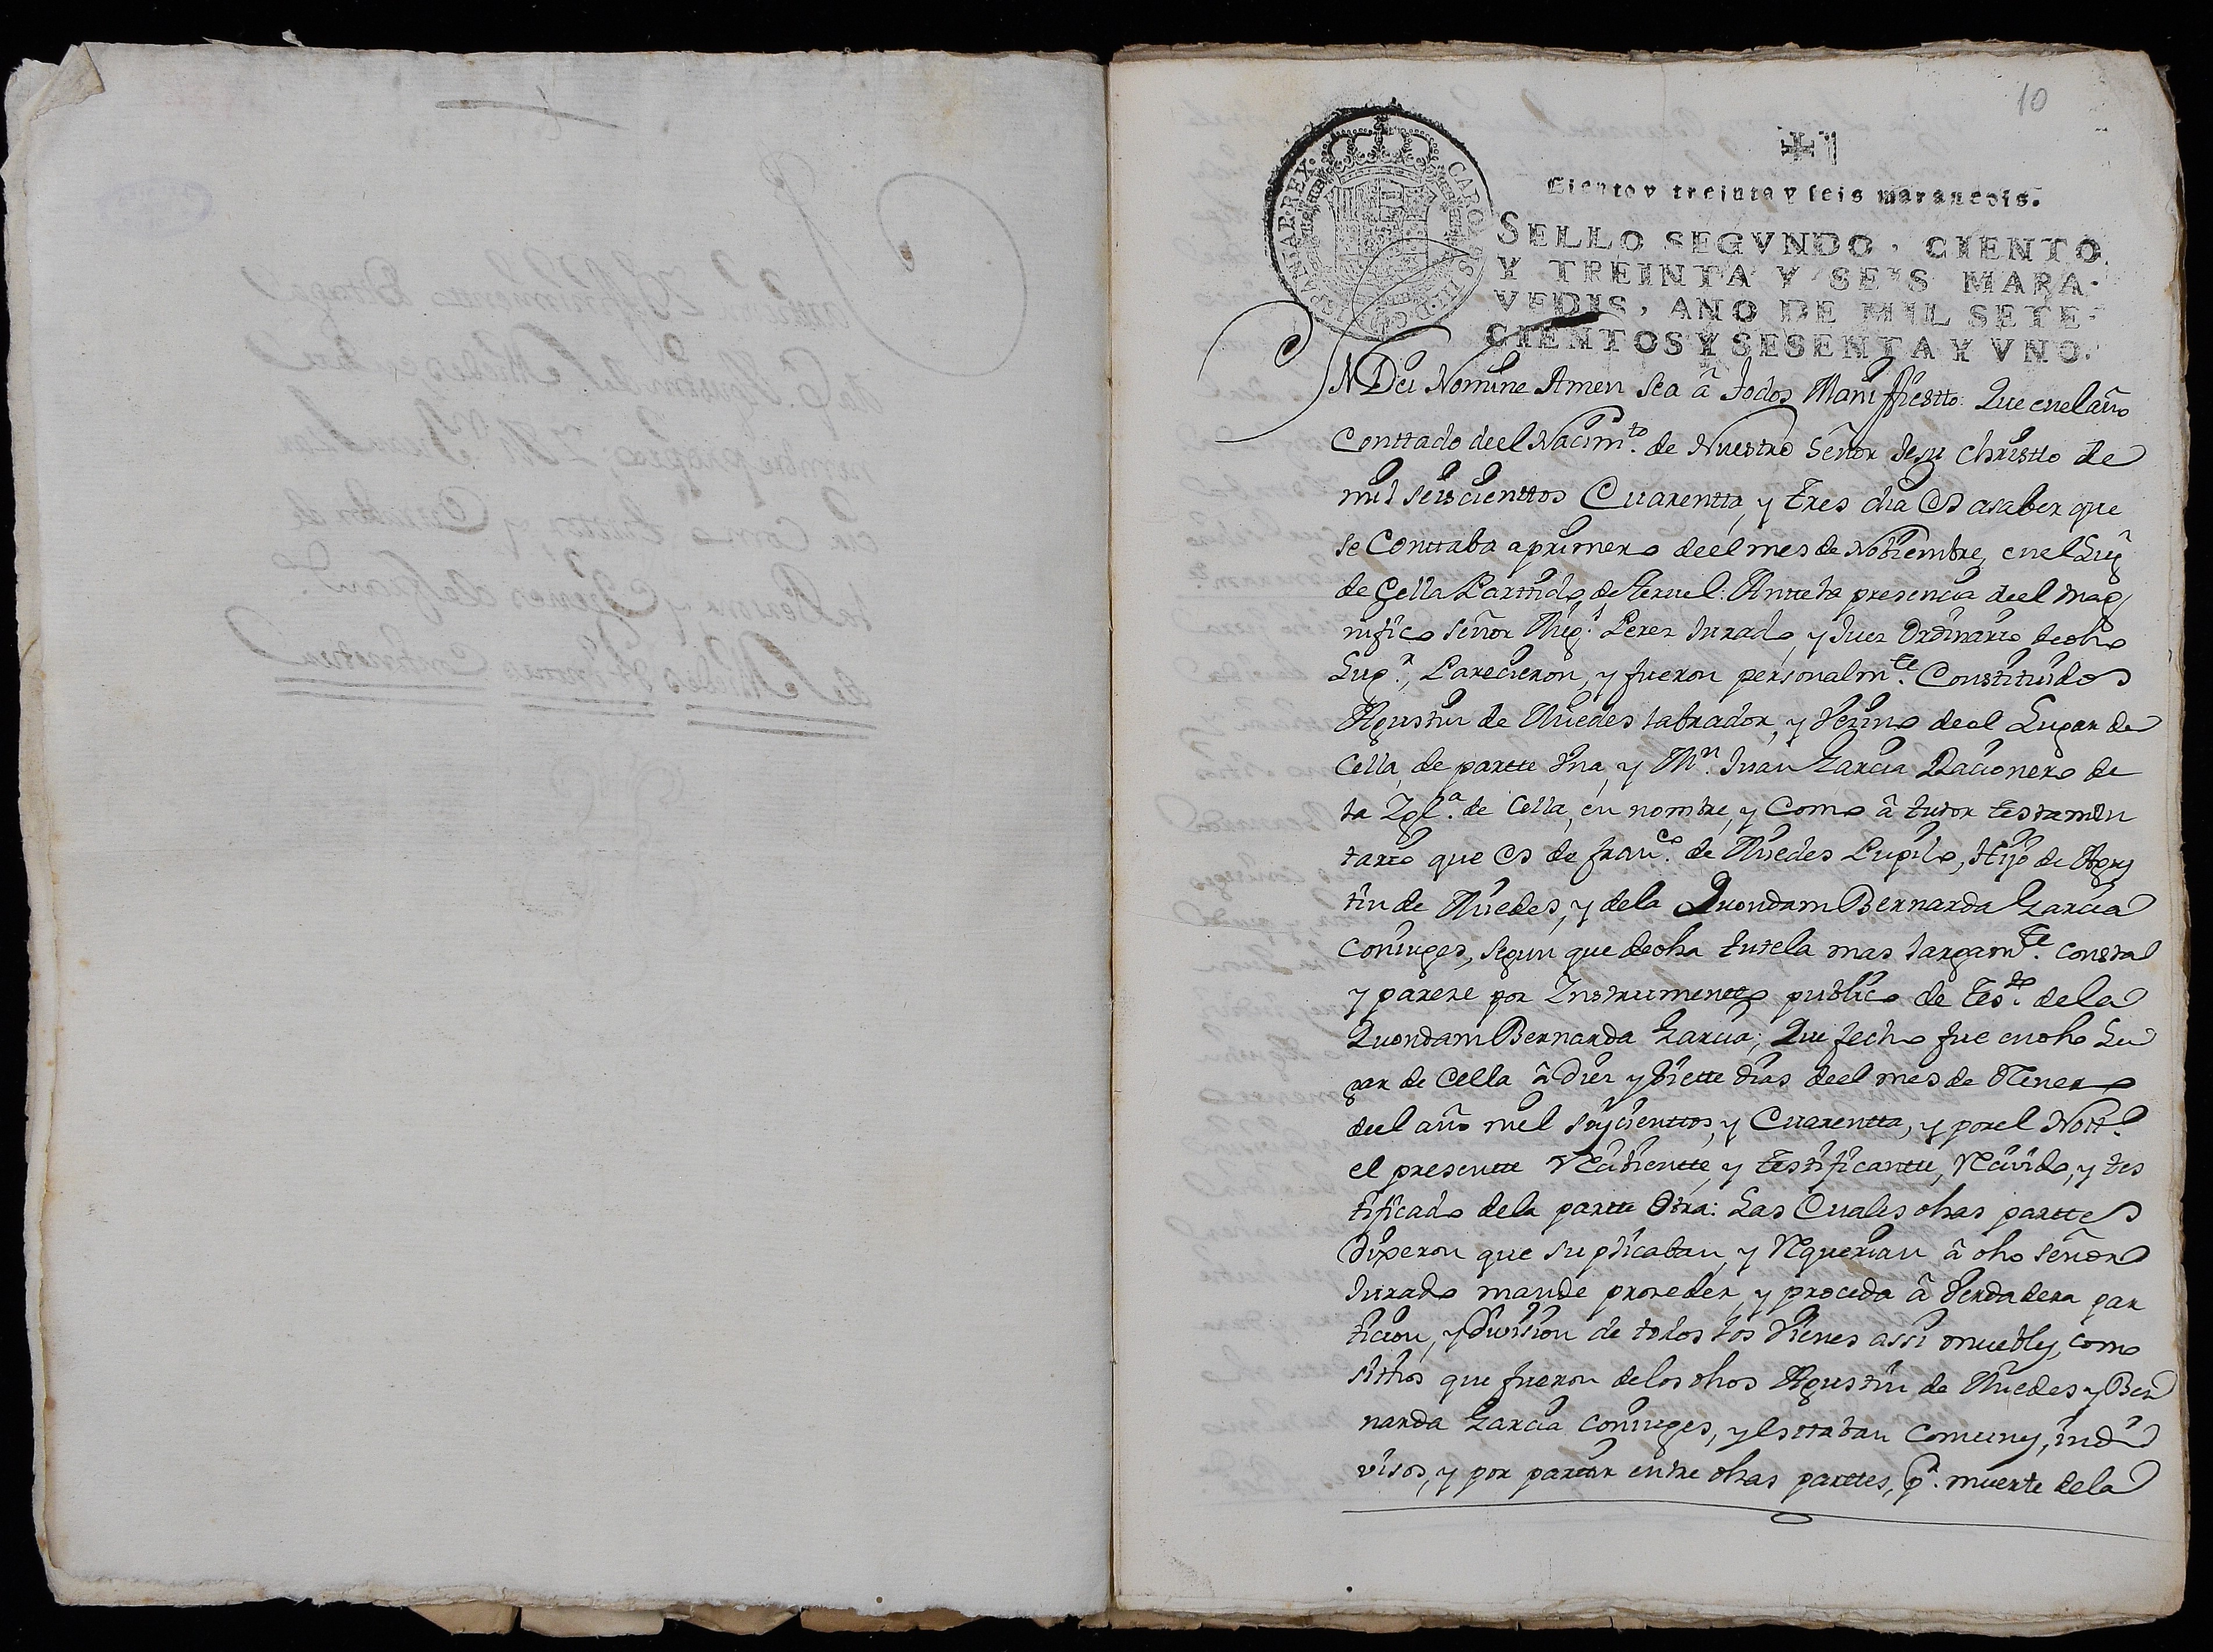 10
Ciento y treinta y seis maravedis.
SELLO SEGVNDO, CIENTO
Y TREINTA Y SEIS MARA-
VEDIS, ANO DE MIL SETE-
CIENTOS Y SESENTA Y VNO.
IN Dei Nomine Amen Sea â todos Maniffiestto: Que en el año
Conttado deel Nacim.to de Nuestro Señor Jesu Christto de
mil seiscienttos Cuarentta, y tres dia Es asaber que
se Conttaba a primero deel mes de Nobiembre, en el Lug
de Çella Parttido de teruel: Antte la presencia deel mag
nifico señor Mig.l Perez Jurado, y Juez Ordinario de dho
Lug.r, Parecieron, y fueron personalm.te Constituidos
Agustin de Miedes labrador, y Vezino deel Lugar de
Cella, de partte Vna, y M.n Juan Garcia Racionero de
la Igl.a de Cella, en nombre, y Como â tutor testamen
tario que es de fran.co de Miedes Pupilo, Hijo de Agus
tin de Miedes, y dela Quondam Bernarda Garcia
Coniuges, segun que de dha tutela mas largam.te consta
y pareze por Instrumentto publico de tes.to de la
Quondam Bernarda Garcia; Que fecho fue en dho Lu
gar de Cella â Diez y siette dias deel mes de Henero
deel año mil seyscienttos, y Cuarentta, y por el Nott.
el presentte Recibientte, y testificantte, Recivido, y tes
tificado dela partte Otra: Las Cuales dhas parttes
Dixeron que suplicaban, y Requerian â dho señor
Jurado mande prozeder, y proceda â Verdadera par
ticion, y Division de todos los Vienes assi muebles, como
sitios que fueron de los dhos Agustin de Miedes y Ber
narda Garcia coniuges, y Esttaban Comunes, indi
visos, y por partir entre dhas parttes, p.r muerte dela